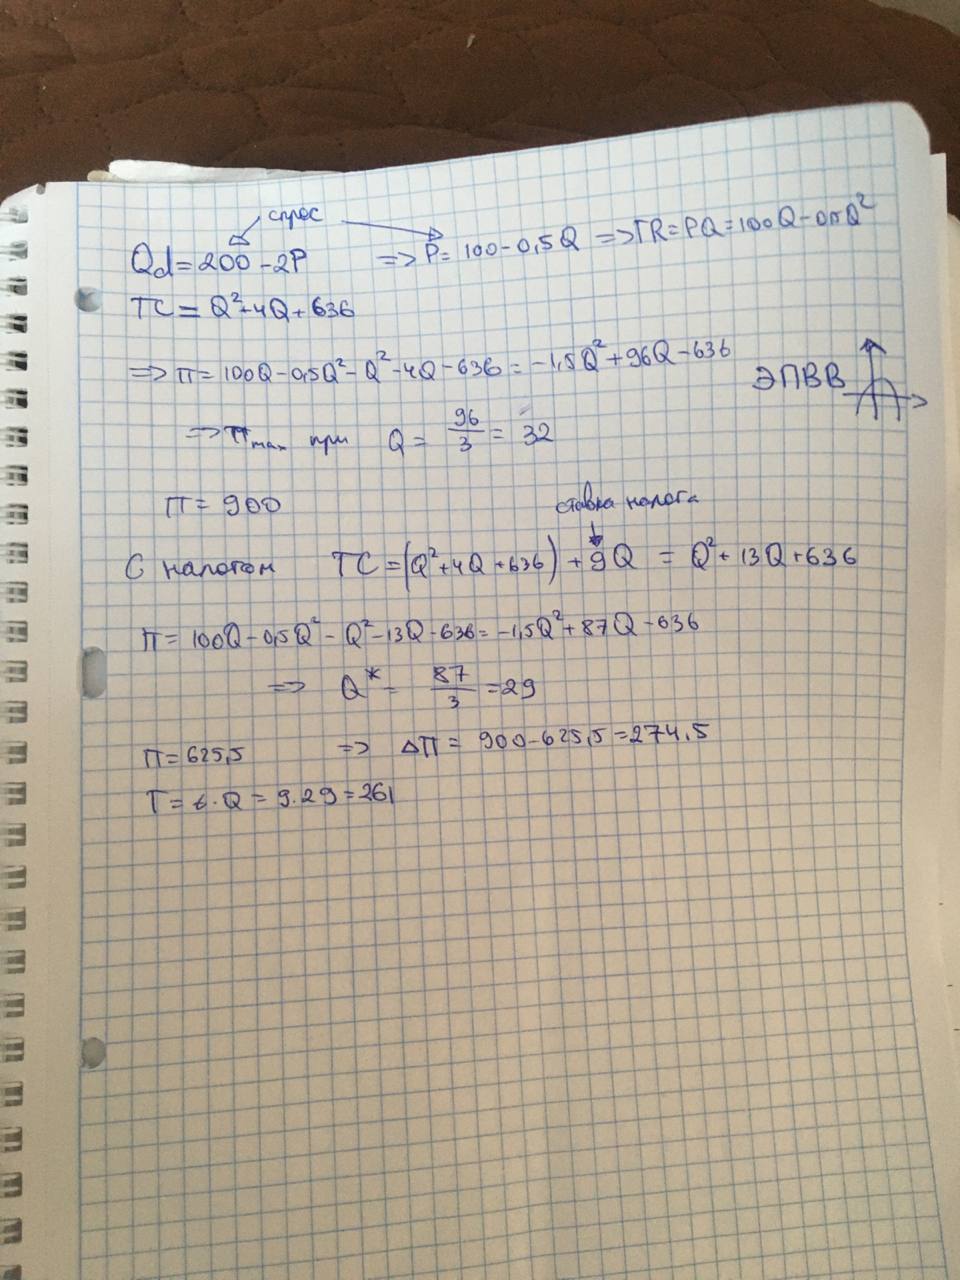 спрос
Qd = 200 - 2P => P = 100 - 0,5Q => TR = PQ = 100Q - 0,5Q²
TC = Q² + 4Q + 636
=> П = 100Q - 0,5Q² - Q² - 4Q - 636 = -1,5Q² + 96Q - 636
ЭПВВ
=> Пmax при Q = 96/3 = 32
П = 900
ставка налога
С налогом TC = (Q² + 4Q + 636) + 9Q = Q² + 13Q + 636
П = 100Q - 0,5Q² - Q² - 13Q - 636 = -1,5Q² + 87Q - 636
=> Q* = 87/3 = 29
П = 625,5 => ΔП = 900 - 625,5 = 274,5
T = t · Q = 9 · 29 = 261